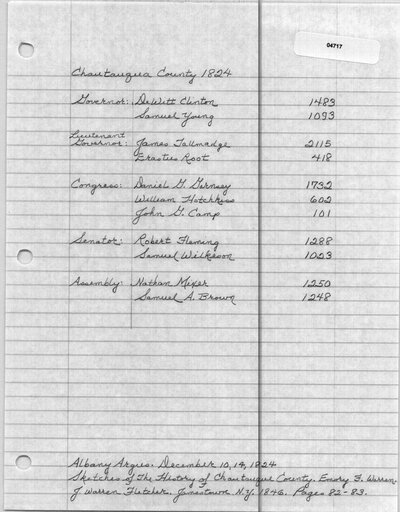 04717
Chautauqua County 1824
Governor: DeWitt Clinton 1483
Samuel Young 1093
Lieutenant
Governor: James Tallmadge 2115
Erastus Root 418
Congress: Daniel G. Garnsey 1732
William Hotchkiss 602
John G. Camp 101
Senator: Robert Fleming 1288
Samuel Wilkeson 1023
Assembly: Nathan Mixer 1250
Samuel A. Brown 1248
Albany Argus. December 10, 14, 1824
Sketches of The History of Chautauque County. Emory F. Warren.
J Warren Fletcher, Jamestown N.Y. 1846. Pages 82-83.